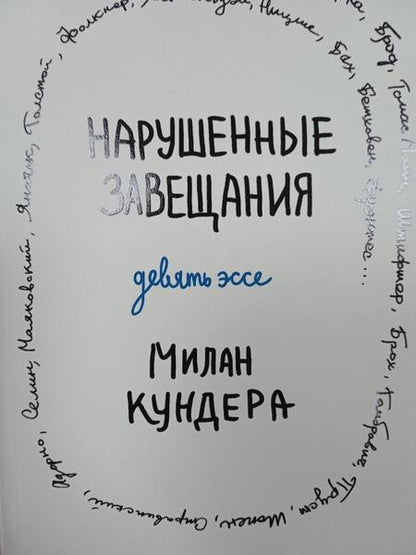 НАРУШЕННЫЕ
ЗАВЕЩАНИЯ
девять эссе
МИЛАН
КУНДЕРА
Фолкнер, Толстой, Яначек, Маяковский, Селин,
Ницше, Бах, Бетховен,
Брод, Томас Манн, Штифтер, Брох, Гомбрович, Пруст, Шопен, Стравинский, Адорно,